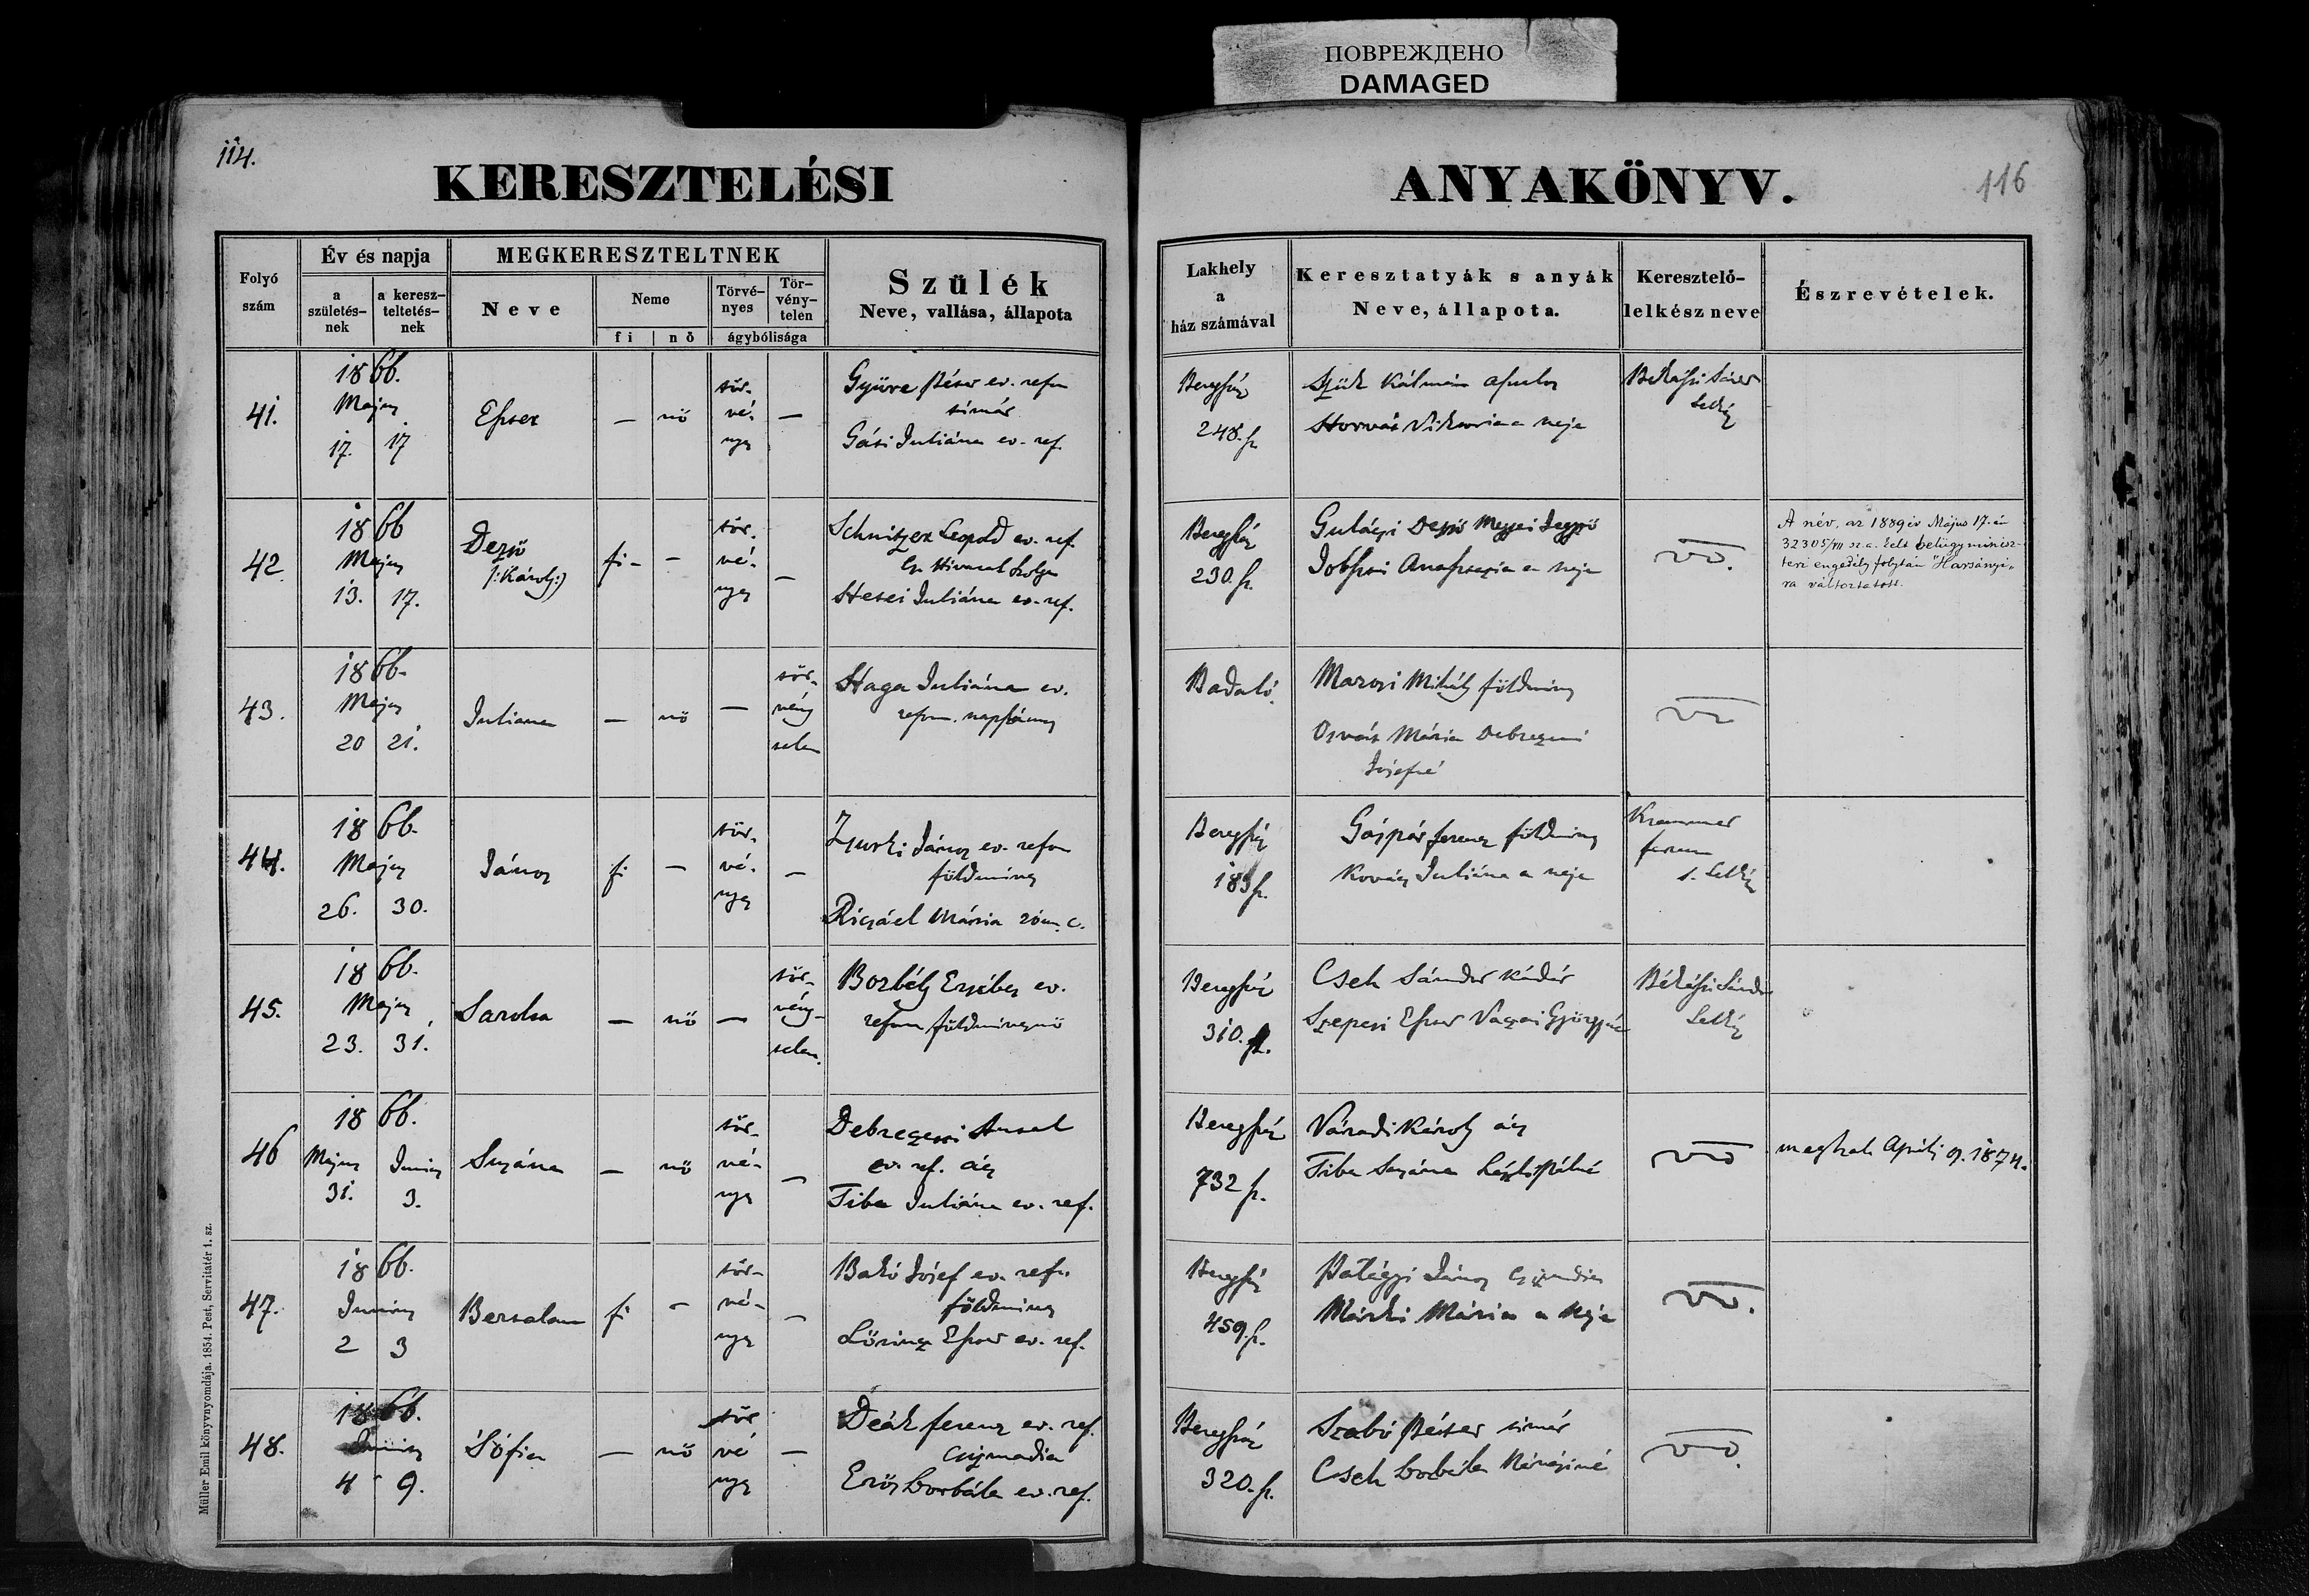 ПОВРЕЖДЕНО
DAMAGED
114.
KERESZTELÉSI
ANYAKÖNYV.
116
Folyó szám
Év és napja
a születés-nek
a keresz-teltetés-nek
MEGKERESZTELTNEK
Neve
Neme
fi
nő
Törvé-nyes
Tör-vény-telen
ágybólisága
Szülék
Neve, vallása, állapota
Lakhely
a
ház számával
Keresztatyák s anyák
Neve, állapota.
Keresztelő-
lelkész neve
Észrevételek.
41.
1866.
Május
17. 17
Eszter
—
nő
tör-
vé-
nyes
—
Gyüre Péter ev. refor
timár
Gási Juliána ev. ref.
Beregszász
248. sz.
Szük Kálmán
Horvát Viktoria a neje
Békássi Sándor
Lelkész
42
1866
Május
13. 17.
Dezső
/:Károly:/
fi -
-
tör-
vé-
nyes
—
Schnitzer Leopold ev. ref.
Hivatal szolga
Hetei Juliána ev. ref.
Beregszász
230. sz.
Gulácsi Dezső Megyei Jegyző
Anasztazia a neje
A név, az 1889 év Május 17.-én
32305/VII sz. a. kelt belügyminisz-
teri engedély folytán "Harsányi"-
ra változtatott.
43.
1866.
Május
20 21.
Juliana
—
nő
—
tör-
vény
telen
Haga Juliána ev.
refor. napszámos
Badaló
Marosi Mihály földmives
Osvát Mária Debreczeni
Józsefné
44.
1866.
Május
26. 30.
János
fi
—
tör-
vé-
nyes
—
János ev. refor
földmives
Mária róm. c.
Beregszász
189 sz.
Gáspár Ferencz földmives
Kovács Juliána a neje
Krammer
Ferencz
s. Lelkész
45.
1866.
Május
23. 31.
Sarolta
—
nő
—
tör-
vény-
telen.
Borbély Erzsébet ev.
refor földmivesnő
Beregszász
310. sz.
Cseh Sándor kádár
Szepesi Eszter Györgyné
Békássi Sándor
Lelkész
46
1866.
Május Junius
31. 3.
Susánna
—
nő
tör-
vé-
nyes
—
Debreczeni Antal
ev. ref. ács
Tiba Juliána ev. ref.
Beregszász
732 sz.
Váradi Károly ács
Tiba Susánna László Pálné
meghalt April 9. 1874.
47.
1866.
Junius
2 3
Bertalan
fi
-
tör-
vé-
nyes
—
Bakó József ev. ref.
földmives
Lőrincz Eszter ev. ref.
Beregszász
459. sz.
Patágyi János Csizmadia
Márki Mária a neje
48.
1866.
Junius
4 9.
Sófia
—
nő
tör
vé
nyes
—
Deák Ferencz ev. ref.
csizmadia
Erős Borbála ev. ref.
Beregszász
320. sz.
Szabó Péter timár
Cseh Borbála
Müller Emil könyvnyomdája. 1854. Pest, Servitatér 1. sz.